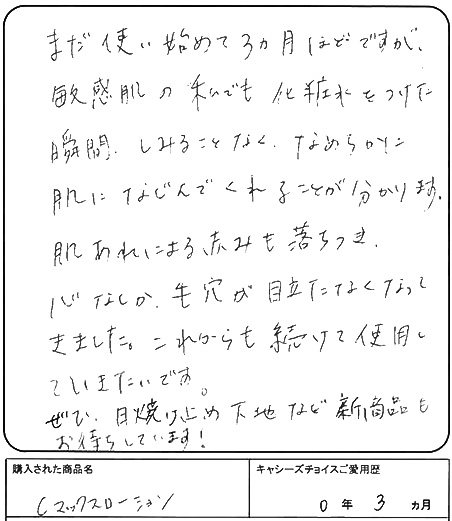 まだ使い始めて3ヵ月ほどですが、
敏感肌の私でも化粧水をつけた
瞬間、しみることなく、なめらかに
肌になじんでくれることが分かります。
肌あれによる赤みも落ちつき、
心なしか、毛穴が目立たなくなって
きました。これからも続けて使用し
ていきたいです。
ぜひ、日焼け止め下地など新商品も
お待ちしています!
購入された商品名 キャシーズチョイスご愛用歴
Cマックスローション 0年 3ヵ月